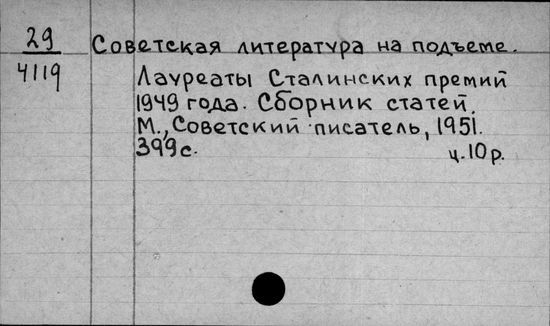 29 Советская литература на подъеме.
4119 Лауреаты Сталинских премий
1949 года. Сборник статей.
М., Советский писатель, 1951.
399 с. ц. 10 р.